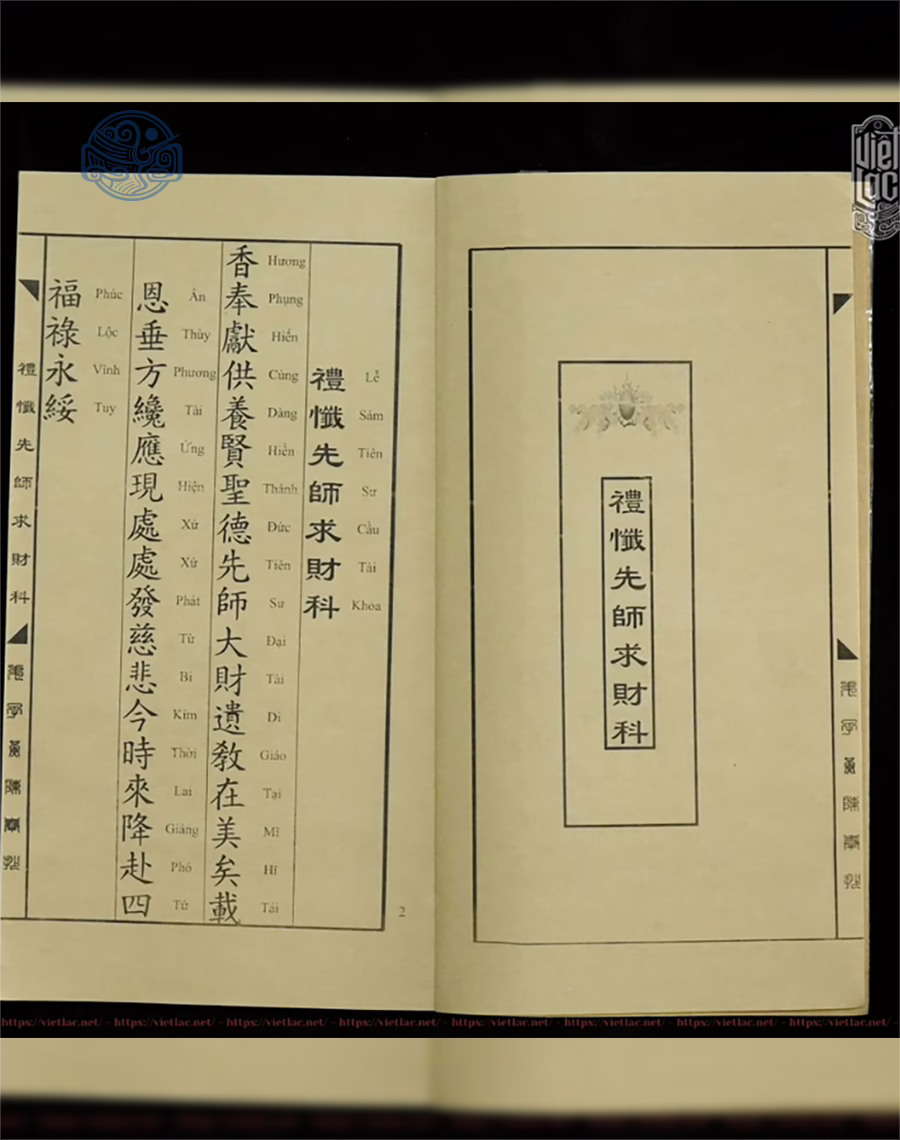 禮懺先師求財科
禮懺先師求財科
Lễ Sám Tiên Sư Cầu Tài Khoa
香奉獻供養賢聖德先師大財遺教在美矣載
Hương Phụng Hiến Cúng Dàng Hiền Thánh Đức Tiên Sư Đại Tài Di Giáo Tại Mĩ Hĩ Tái
恩垂方纔應現處處發慈悲今時來降赴四
Ân Thùy Phương Tài Ứng Hiện Xứ Xứ Phát Từ Bi Kim Thời Lai Giáng Phó Tứ
福祿永綏
Phúc Lộc Vĩnh Tuy
禮懺先師求財科
2
Việt Lạc
https://vietlac.net/ - https://vietlac.net/ - https://vietlac.net/ - https://vietlac.net/ - https://vietlac.net/ - https://vietlac.net/ - https://vietlac.net/ - https://vietlac.net/